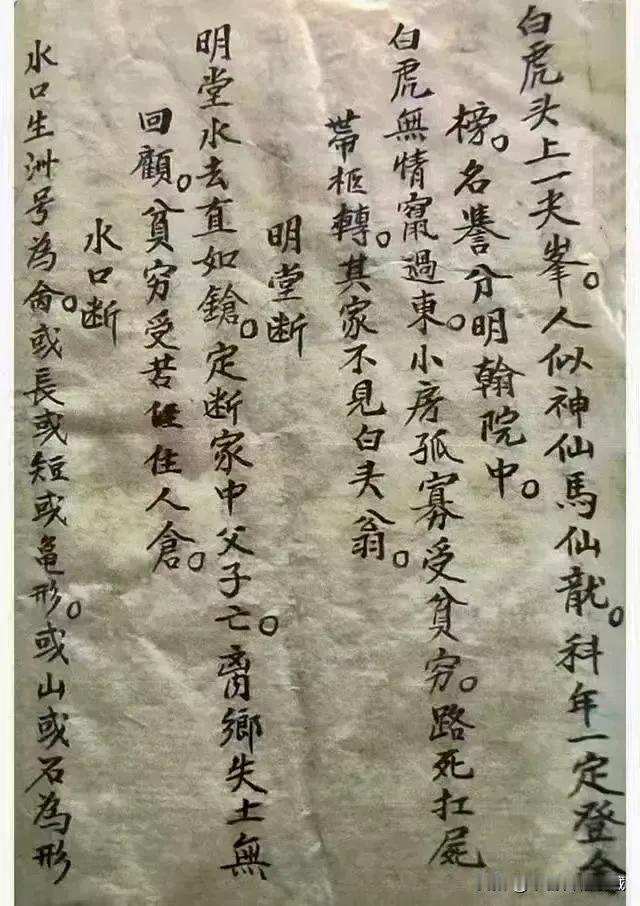 白虎头上一尖峯。人似神仙馬仙龍。科年一定登金
榜。名誉分明翰院中。
白虎無情竄過東。小房孤寡受貧穷。路死扛屍
帶柩轉。其家不見白头翁。
明堂断
明堂水去直如鎗。定断家中父子亡。离鄉失土無
回顧。貧穷受苦住人倉。
水口断
水口生洲号為禽。或長或短或亀形。或山或石為形